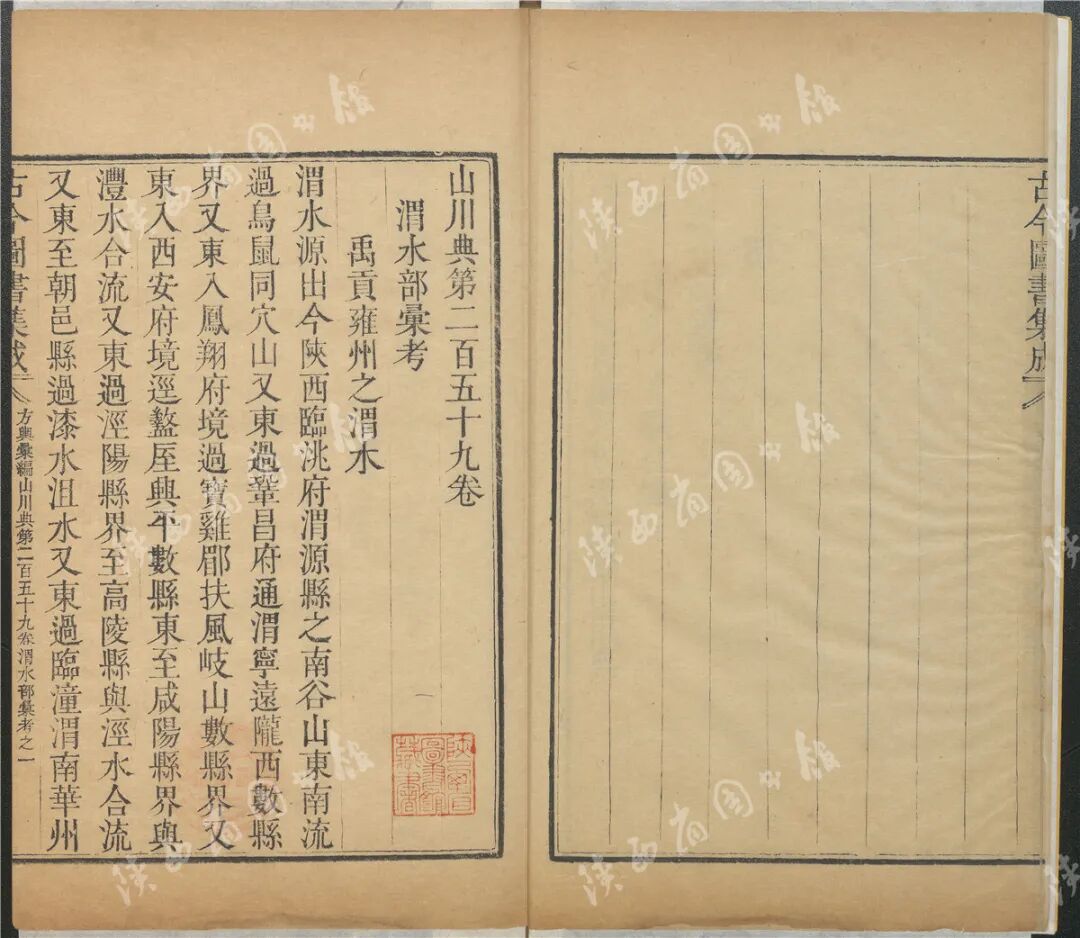 古今圖書集成
山川典第二百五十九卷
渭水部彙考
禹貢雍州之渭水
渭水源出今陝西臨洮府渭源縣之南谷山東南流
過鳥鼠同穴山又東過鞏昌府通渭寧遠隴西數縣
界又東入鳳翔府境過寶雞郿扶風岐山數縣界又
東入西安府境逕盩厔興平數縣東至咸陽縣界與
灃水合流又東過涇陽縣界至高陵縣與涇水合流
又東至朝邑縣過漆水沮水又東過臨潼渭南華州
古今圖書集成
方輿彙編山川典第二百五十九卷渭水部彙考之一
陝西省圖書館藏書
陕西省图书馆